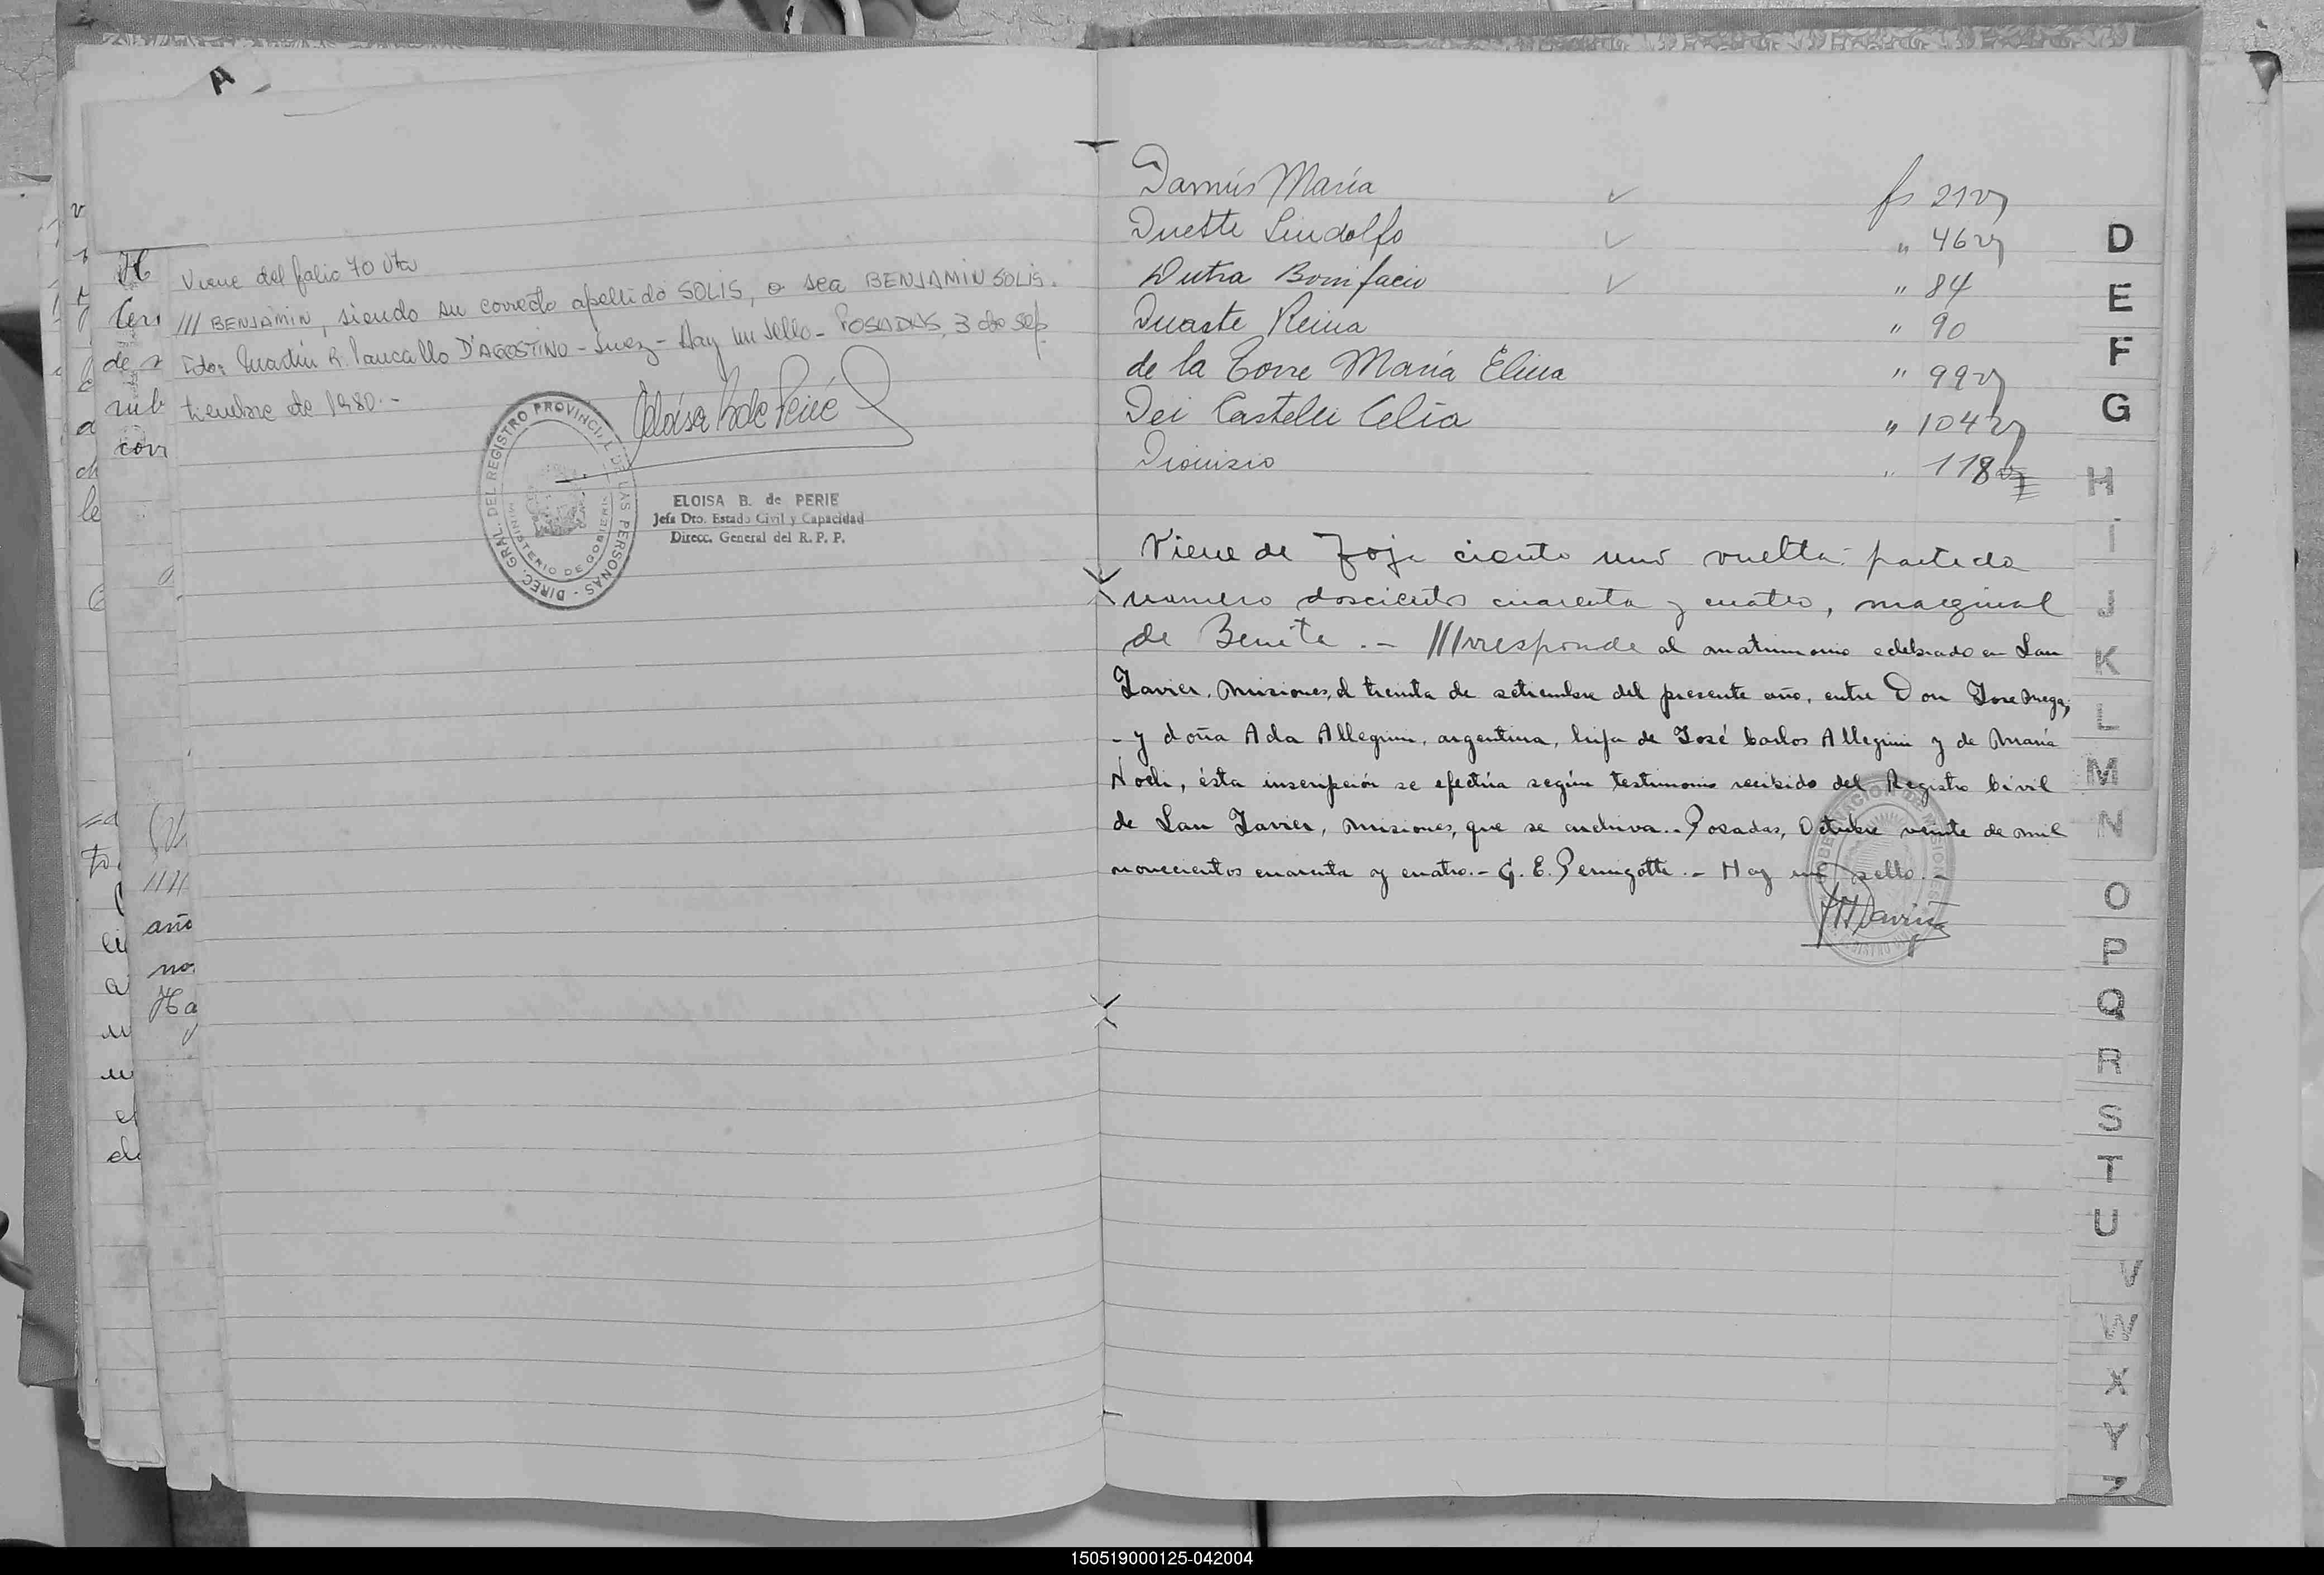 A
Viene del folio 70 vta
/// BENJAMIN, siendo su correcto apellido SOLIS, o sea BENJAMIN SOLIS.
Fdo: Martin R. D'AGOSTINO - Juez - Hay un sello - POSADAS, 3 de sep
tiembre de 1980.-
DIREC. GRAL. DEL REGISTRO PROVINCIAL DE LAS PERSONAS
MINISTERIO DE GOBIERNO
ELOISA B. de PERIE
Jefa Dto. Estado Civil y Capacidad
Direcc. General del R. P. P.
Darnús María fs 21 v
Duette Lindolfo " 46 v
Dutra Bonifacio " 84
Duarte Reina " 90
de la Torre María Elina " 99 v
Dei Castelli Celia " 104 v
Dionisio " 118
Viene de foja ciento uno vuelta partida
numero doscientos cuarenta y cuatro, marginal
de Benite .- ///rresponde al matrimonio celebrado en San
Javier, Misiones, el treinta de setiembre del presente año, entre Don Jose
- y doña Ada Allegrini, argentina, hija de José Carlos Allegrini y de María
ésta inscripción se efectúa según testimonio recibido del Registro Civil
de San Javier, Misiones, que se archiva.- Posadas, Octubre veinte de mil
novecientos cuarenta y cuatro.- G. E. Pernigotti .- Hay un sello.-
D
E
F
G
H
I
J
K
L
M
N
O
P
Q
R
S
T
U
V
W
X
Y
Z
150519000125-042004